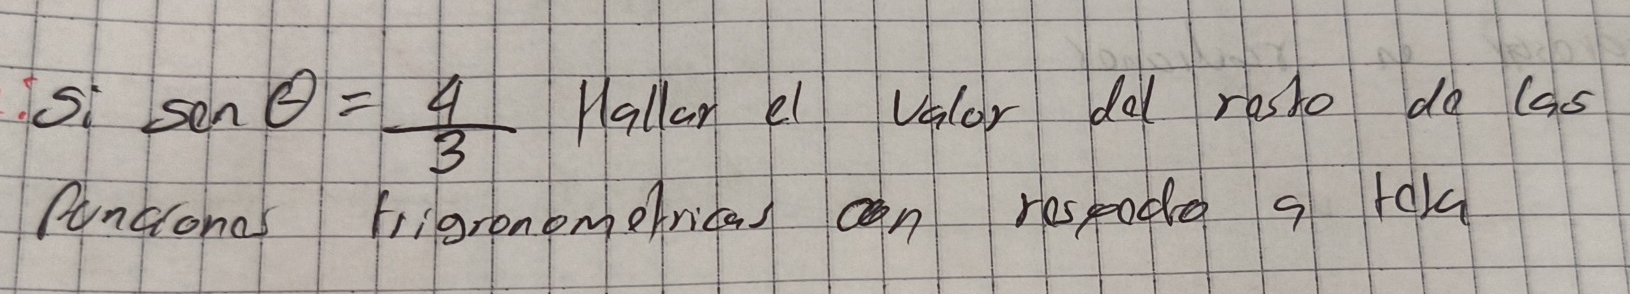 Si sen θ = 4/3 Hallar el valor del resto de las
funciones trigronometricas con respecto a teta